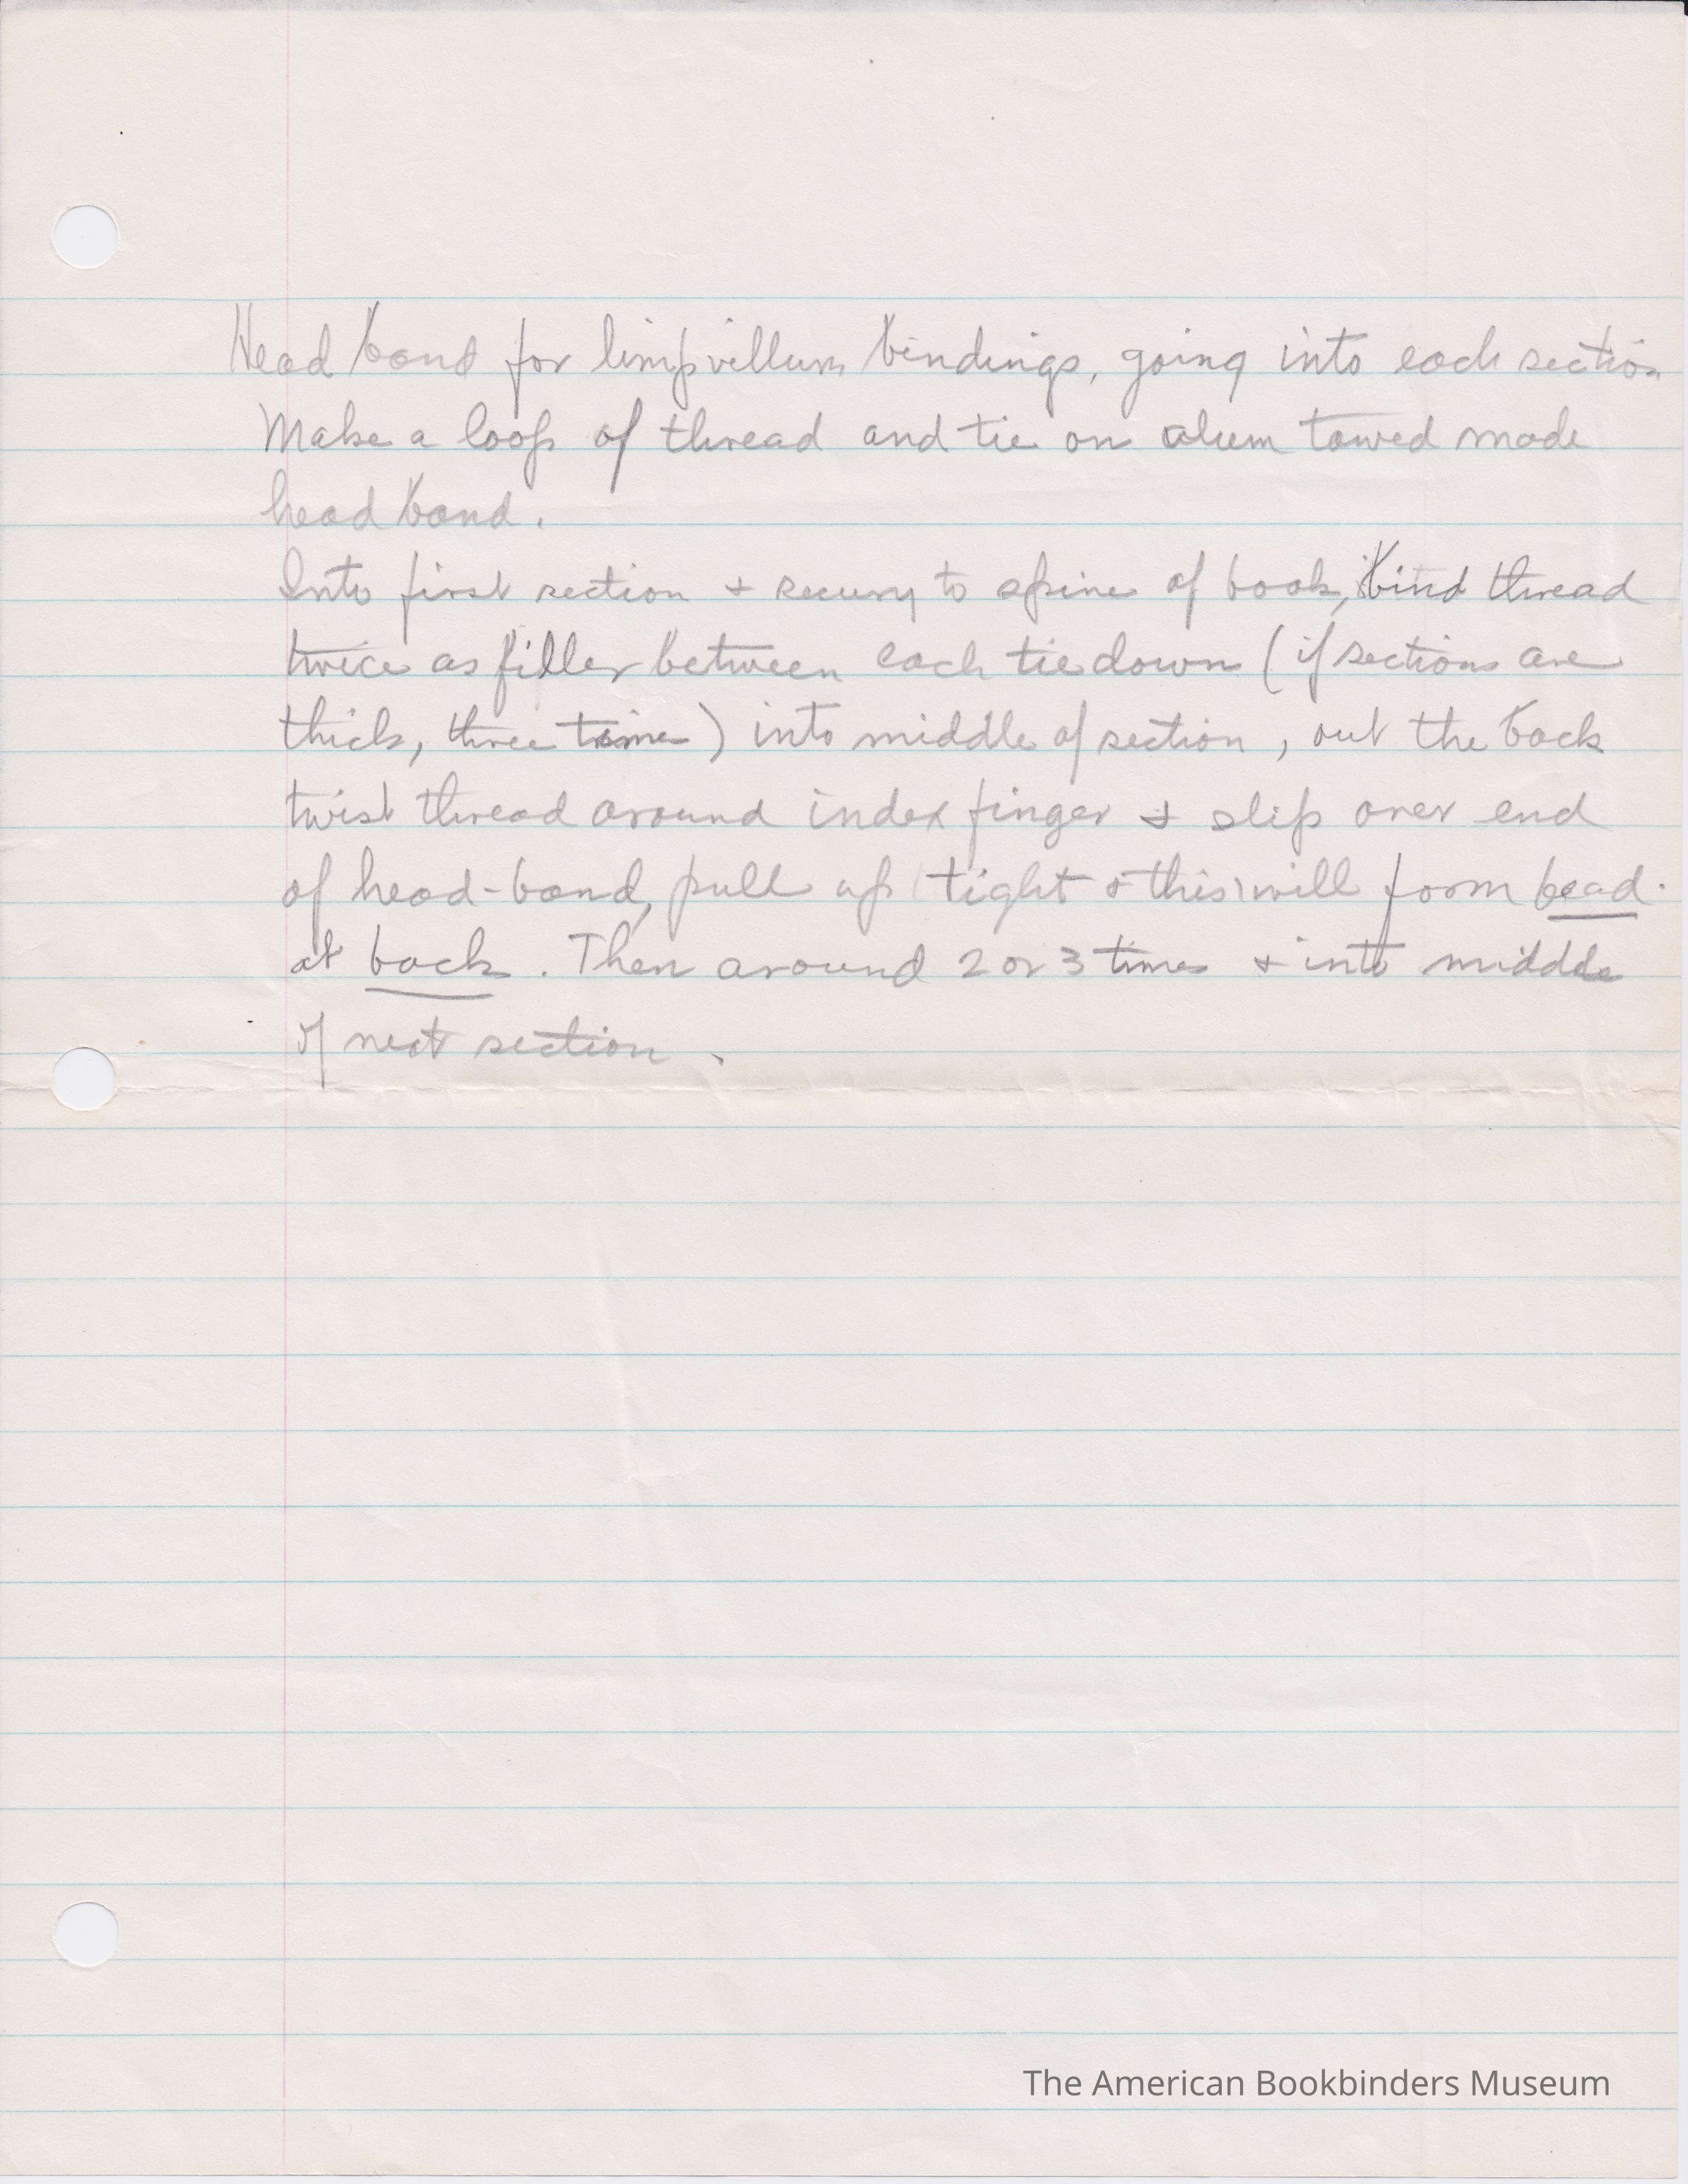 Head band for limp vellum bindings, going into each section
Make a loop of thread and tie on alum tawed made
head band.
Into first section + securing to spine of book, bind thread
twice as filler between each tie down (if sections are
thick, three time) into middle of section, out the back
twist thread around index finger & slip over end
of head-band, pull up tight & this will form bead.
at back. Then around 2 or 3 times + into middle
of next section.
The American Bookbinders Museum